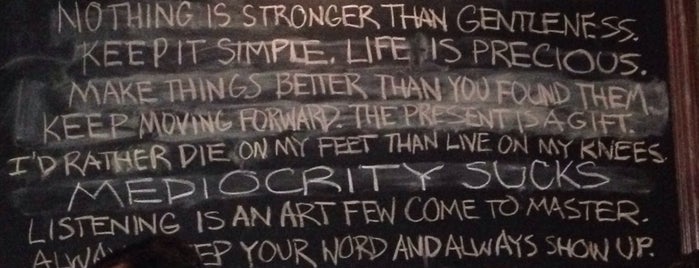 NOTHING IS STRONGER THAN GENTLENESS.
KEEP IT SIMPLE. LIFE IS PRECIOUS.
MAKE THINGS BETTER THAN YOU FOUND THEM.
KEEP MOVING FORWARD. THE PRESENT IS A GIFT.
I'D RATHER DIE ON MY FEET THAN LIVE ON MY KNEES.
MEDIOCRITY SUCKS
LISTENING IS AN ART FEW COME TO MASTER.
YOUR WORD AND ALWAYS SHOW UP.